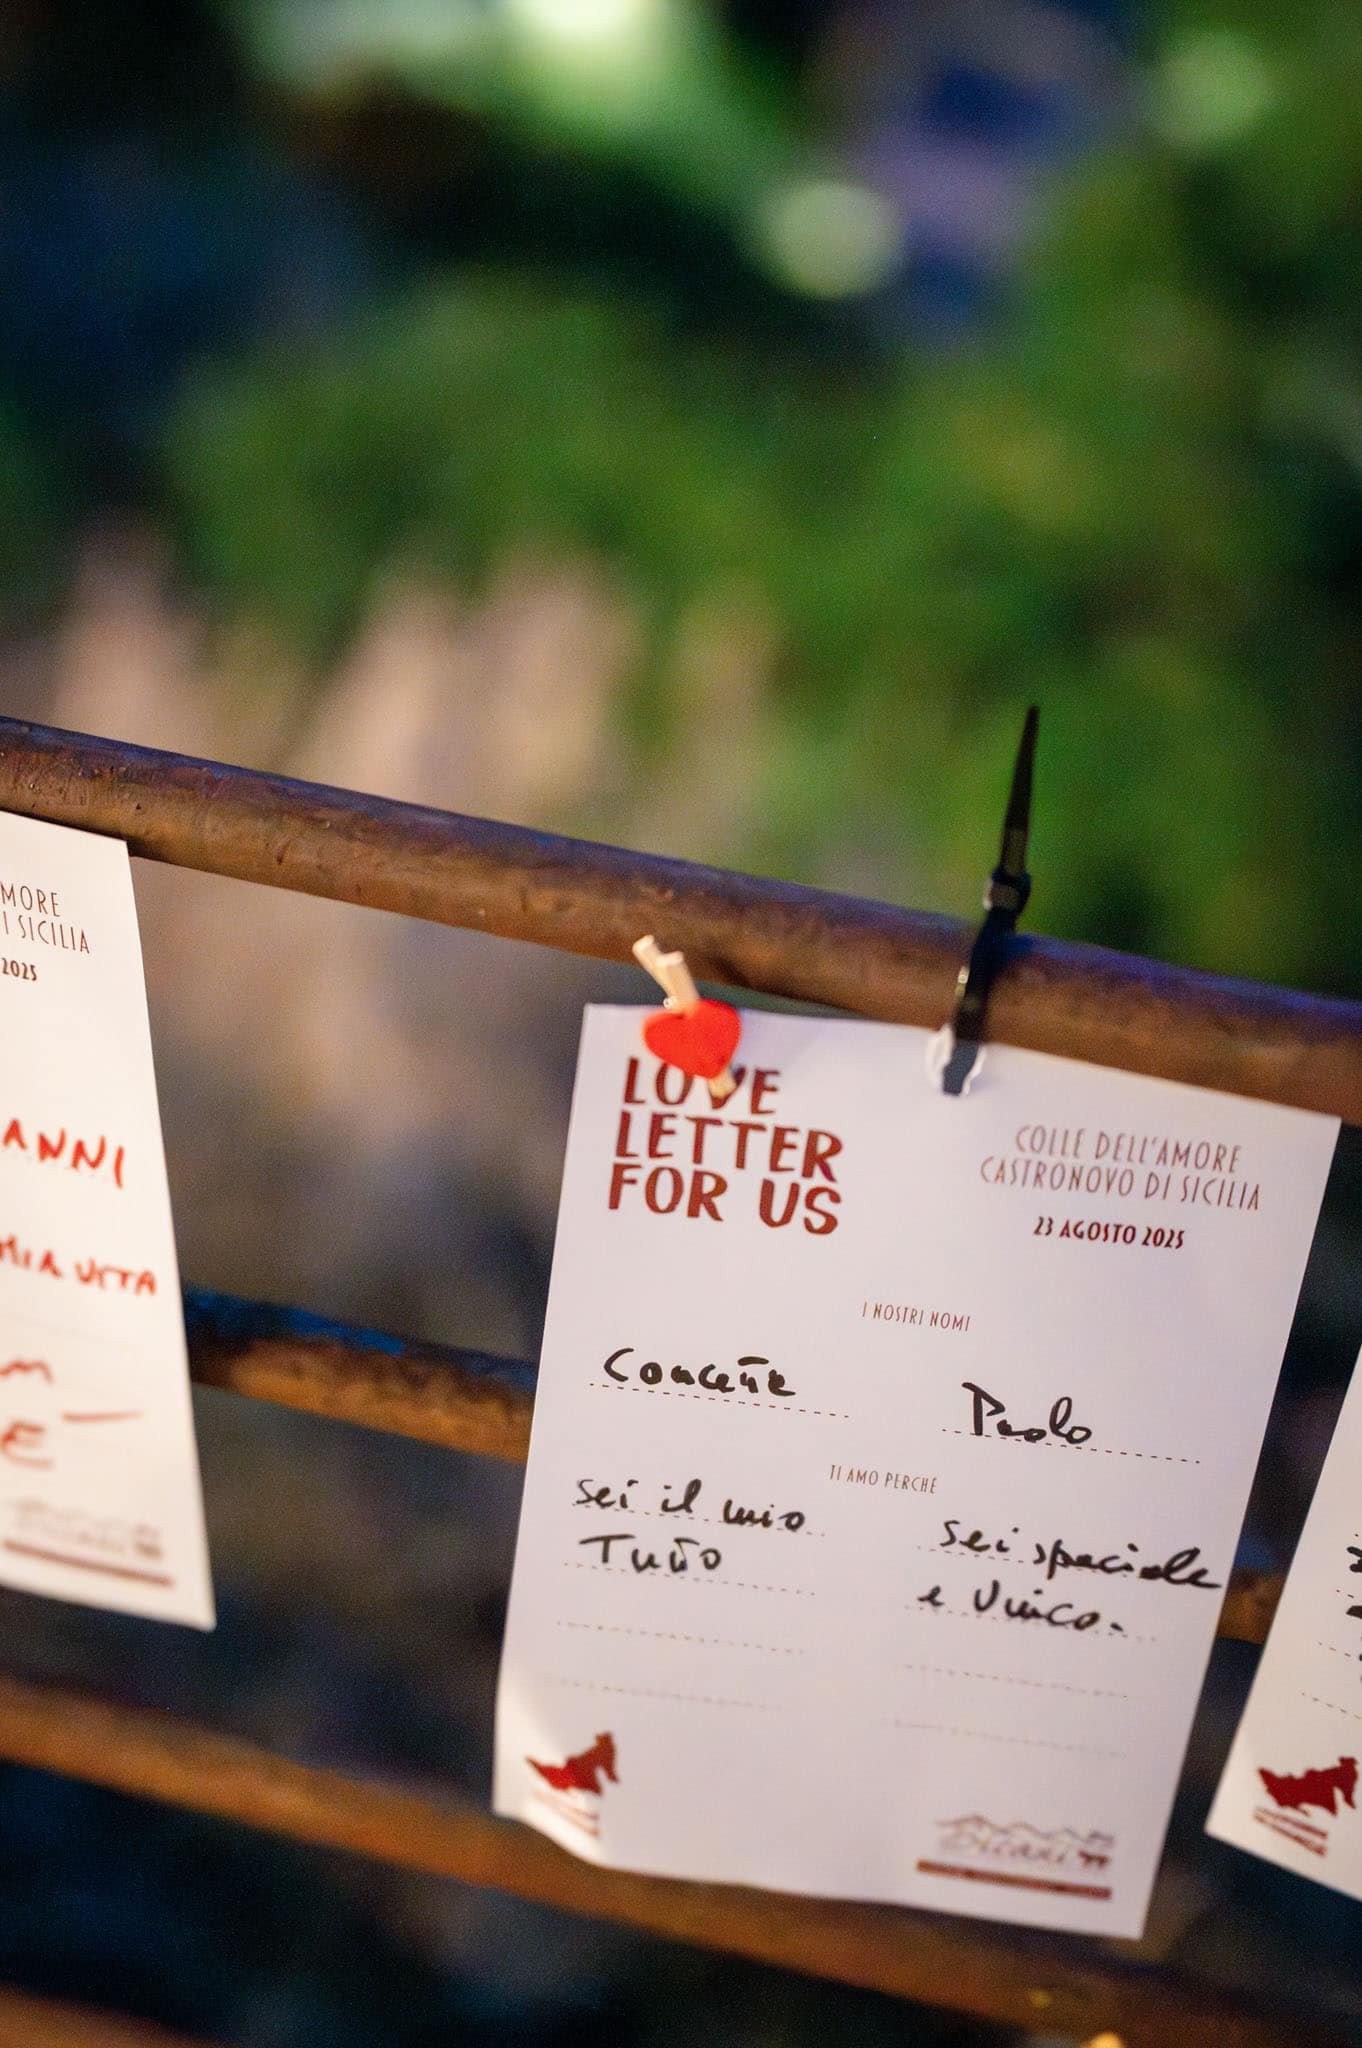 MORE
I SICILIA
2025
ANNI
MIA VITA
M
E
LOVE
LETTER
FOR US
COLLE DELL'AMORE
CASTRONOVO DI SICILIA
23 AGOSTO 2025
I NOSTRI NOMI
Concetta
Paolo
TI AMO PERCHÉ
sei il mio
Tutto
sei speciale
e Unico.
Sicani